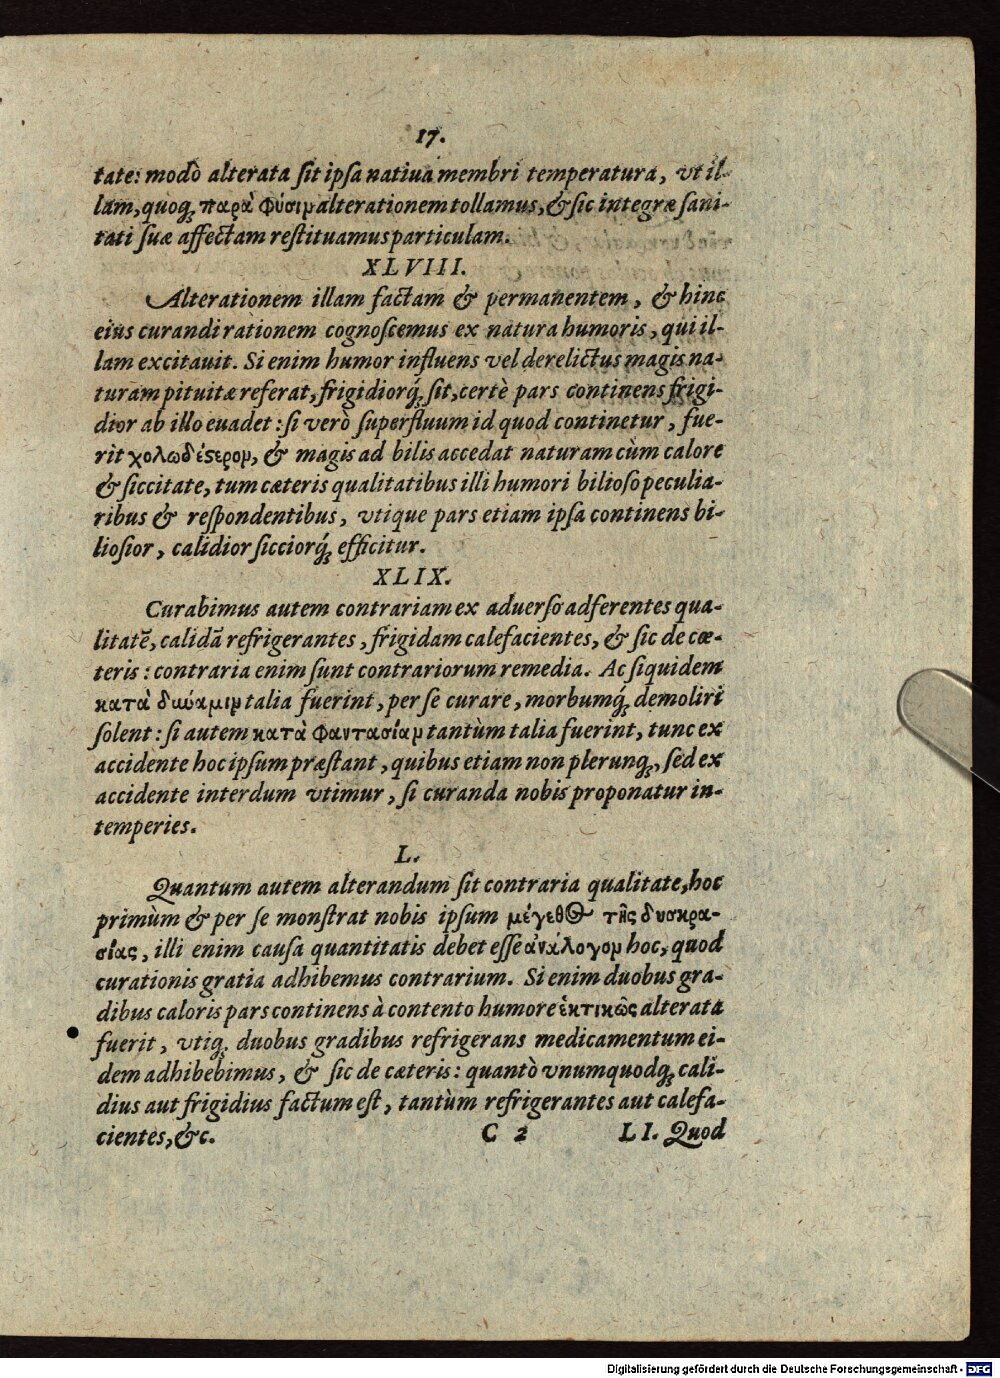 17.
tate: modò alterata sit ipsa natiua membri temperatura, vt il-
lam, quoq; παρὰ φύσιμ alterationem tollamus, & sic integræ sani-
tati suæ affectam restituamus particulam.
XLVIII.
Alterationem illam factam & permanentem, & hinc
eius curandi rationem cognoscemus ex natura humoris, qui il-
lam excitauit. Si enim humor influens vel derelictus magis na-
turam pituitæ referat, frigidiorq́; sit, certè pars continens frigi-
dior ab illo euadet: si verò superfluum id quod continetur, fue-
rit χολωδέςερομ, & magis ad bilis accedat naturam cùm calore
& siccitate, tum cæteris qualitatibus illi humori bilioso peculia-
ribus & respondentibus, vtique pars etiam ipsa continens bi-
liosior, calidior sicciorq́; efficitur.
XLIX.
Curabimus autem contrariam ex aduerso adferentes qua-
litatē, calidā refrigerantes, frigidam calefacientes, & sic de cæ-
teris: contraria enim sunt contrariorum remedia. Ac siquidem
κατὰ δυύαμιμ talia fuerint, per se curare, morbumq́; demoliri
solent: si autem κατὰ φαντασίαμ tantùm talia fuerint, tunc ex
accidente hoc ipsum præstant, quibus etiam non plerunq;, sed ex
accidente interdum vtimur, si curanda nobis proponatur in-
temperies.
L.
Quantum autem alterandum sit contraria qualitate, hoc
primùm & per se monstrat nobis ipsum μέγεθος τῆς δυσκρα-
σίας, illi enim causa quantitatis debet esse ἀνάλογομ hoc, quod
curationis gratia adhibemus contrarium. Si enim duobus gra-
dibus caloris pars continens à contento humore ἑκτικῶς alterata
fuerit, vtiq; duobus gradibus refrigerans medicamentum ei-
dem adhibebimus, & sic de cæteris: quantò vnumquodq; cali-
dius aut frigidius factum est, tantùm refrigerantes aut calefa-
cientes, &c.
C 2 LI. Quod
Digitalisierung gefördert durch die Deutsche Forschungsgemeinschaft - DFG